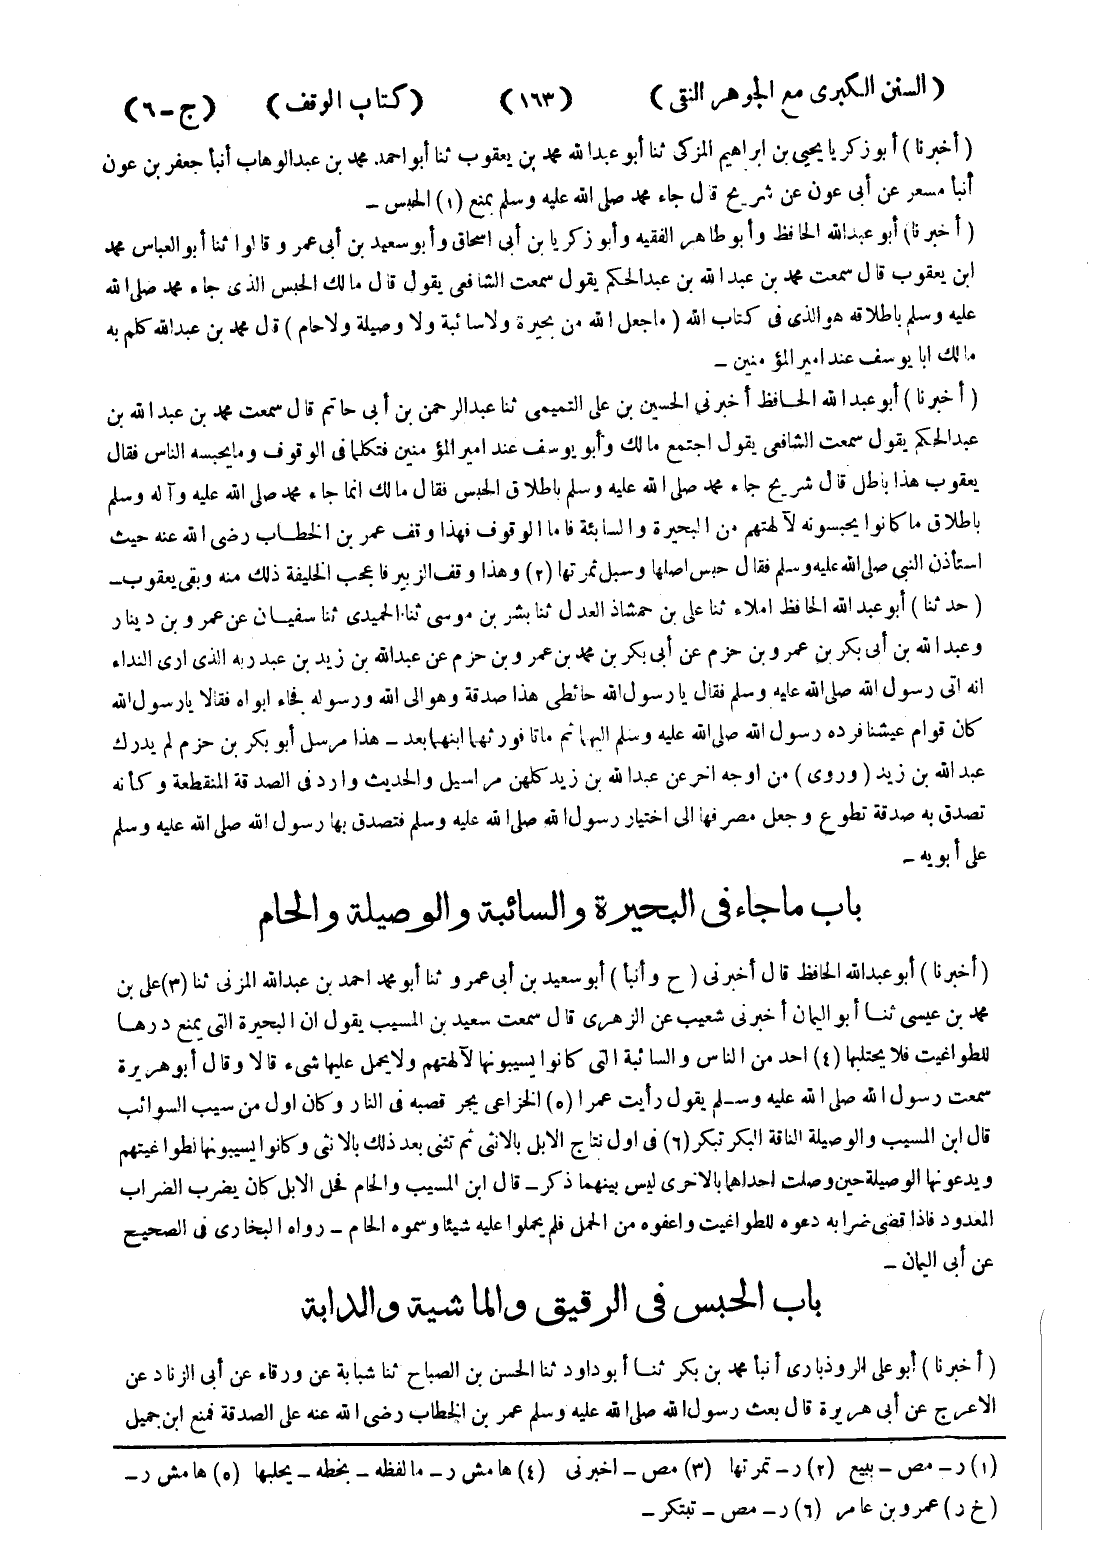 ( السنن الكبرى مع الجوهر النقى ) (١٦٣) ( كتاب الوقف ) ( ج-٦ )
( أخبرنا ) أبو زكريا يحيى بن ابراهيم المزكى ثنا أبو عبدالله محمد بن يعقوب ثنا أبو احمد محمد بن عبدالوهاب أنبأ جعفر بن عون
أنبأ مسعر عن أبى عون عن شريح قال جاء محمد صلى الله عليه وسلم بمنع (١) الحبس -
( أخبرنا ) أبو عبدالله الحافظ وأبو طاهر الفقيه وأبو زكريا بن أبى اسحاق وأبو سعيد بن أبى عمر و قالوا ثنا أبو العباس محمد
ابن يعقوب قال سمعت محمد بن عبدالله بن عبدالحكم يقول سمعت الشافعى يقول قال مالك الحبس الذى جاء محمد صلى الله
عليه وسلم باطلاقه هو الذى فى كتاب الله ( ماجعل الله من بحيرة ولا سائبة ولا وصيلة ولا حام ) قال محمد بن عبدالله كلم به
مالك ابا يوسف عند امير المؤمنين -
( أخبرنا ) أبو عبدالله الحافظ أخبرنى الحسين بن على التميمى ثنا عبدالرحمن بن أبى حاتم قال سمعت محمد بن عبدالله بن
عبدالحكم يقول سمعت الشافعى يقول اجتمع مالك وأبو يوسف عند امير المؤمنين فتكلما فى الوقوف ومايحبسه الناس فقال
يعقوب هذا باطل قال شريح جاء محمد صلى الله عليه وسلم باطلاق الحبس فقال مالك انما جاء محمد صلى الله عليه وآله وسلم
باطلاق ماكانوا يحبسونه لآلهتهم من البحيرة والسائبة فاما الوقوف فهذا وقف عمر بن الخطاب رضى الله عنه حيث
استأذن النبى صلى الله عليه وسلم فقال حبس اصلها وسبل ثمرتها (٢) وهذا وقف الزبير فاعجب الخليفة ذلك منه وبقى يعقوب-
( حدثنا ) أبو عبدالله الحافظ املاء ثنا على بن حمشاذ العدل ثنا بشر بن موسى ثنا الحميدى ثنا سفيان عن عمرو بن دينار
وعبدالله بن أبى بكر بن عمرو بن حزم عن أبى بكر بن محمد بن عمرو بن حزم عن عبدالله بن زيد بن عبد ربه الذى ارى النداء
انه اتى رسول الله صلى الله عليه وسلم فقال يا رسول الله حائطى هذا صدقة وهو الى الله ورسوله فجاء ابواه فقالا يا رسول الله
كان قوام عيشنا فرده رسول الله صلى الله عليه وسلم اليهما ثم ماتا فورثها ابنهما بعد - هذا مرسل أبو بكر بن حزم لم يدرك
عبدالله بن زيد ( وروى ) من اوجه اخر عن عبدالله بن زيد كلهن مراسيل والحديث وارد فى الصدقة المنقطعة وكأنه
تصدق به صدقة تطوع وجعل مصرفها الى اختيار رسول الله صلى الله عليه وسلم فتصدق بها رسول الله صلى الله عليه وسلم
على أبويه -
باب ماجاء فى البحيرة والسائبة والوصيلة والحام
( أخبرنا ) أبو عبدالله الحافظ قال أخبرنى ( ح وأنبأ ) أبو سعيد بن أبى عمرو ثنا أبو محمد احمد بن عبدالله المزنى ثنا (٣) على بن
محمد بن عيسى ثنا أبو اليمان أخبرنى شعيب عن الزهرى قال سمعت سعيد بن المسيب يقول ان البحيرة التى يمنع درها
للطواغيت فلا يحتلبها (٤) احد من الناس والسائبة التى كانوا يسيبونها لآلهتهم ولايحمل عليها شىء قالا وقال أبو هريرة
سمعت رسول الله صلى الله عليه وسلم يقول رأيت عمرا (٥) الخزاعى يجر قصبه فى النار وكان اول من سيب السوائب
قال ابن المسيب والوصيلة الناقة البكر تبكر (٦) فى اول نتاج الابل بالانثى ثم تثنى بعد ذلك بالانثى وكانوا يسيبونها لطواغيتهم
ويدعونها الوصيلة حين وصلت احداهما بالاخرى ليس بينهما ذكر - قال ابن المسيب والحام فحل الابل كان يضرب الضراب
المعدود فاذا قضى ضرابه دعوه للطواغيت واعفوه من الحمل فلم يحملوا عليه شيئا وسموه الحام - رواه البخارى فى الصحيح
عن أبى اليمان -
باب الحبس فى الرقيق والماشية والدابة
( أخبرنا ) أبو على الروذبارى أنبأ محمد بن بكر ثنا أبو داود ثنا الحسن بن الصباح ثنا شبابة عن ورقاء عن أبى الزناد عن
الاعرج عن أبى هريرة قال بعث رسول الله صلى الله عليه وسلم عمر بن الخطاب رضى الله عنه على الصدقة فمنع ابن جميل
(١) ر - مص - ببيع (٢) ر - تمرتها (٣) مص - اخبرنى (٤) هامش ر - مالفظه - بخطه - يحلبها (٥) هامش ر -
( خ ر ) عمرو بن عامر (٦) ر - مص - تبتكر -